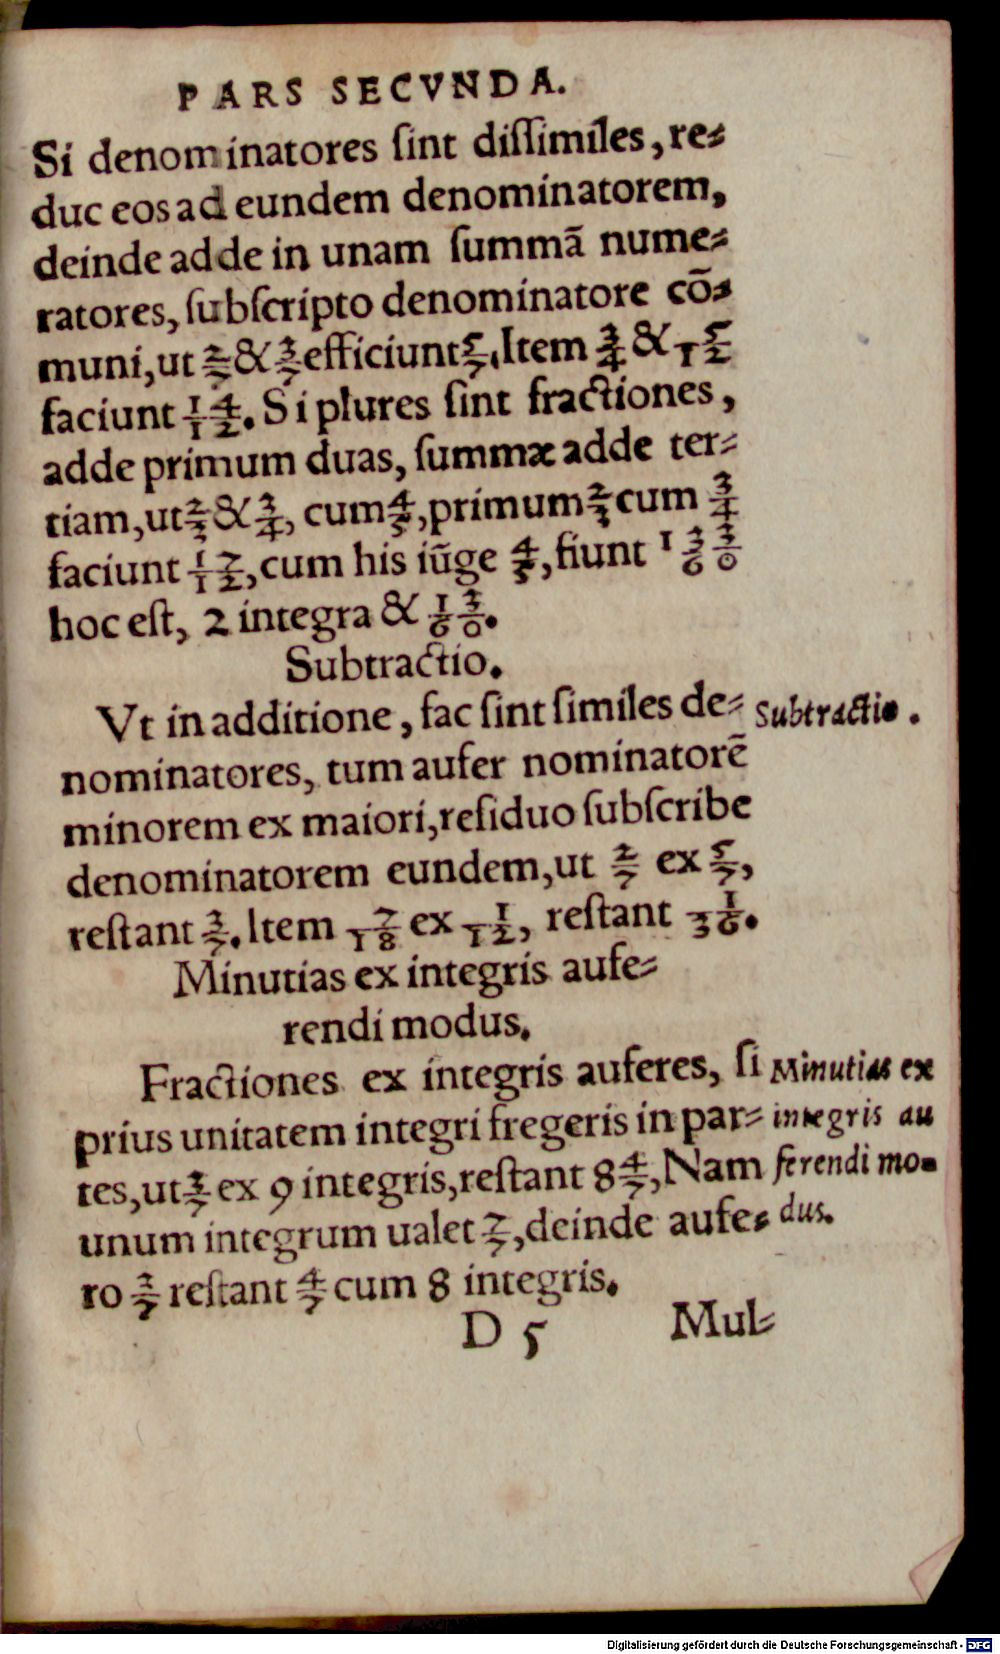 PARS SECVNDA.
Si denominatores ſint diſſimiles, re⸗
duc eos ad eundem denominatorem,
deinde adde in unam ſummã nume⸗
ratores, ſubſcripto denominatore cõ⸗
muni, ut 2/7 & 3/7 efficiunt 5/7. Item 3/4 & 5/12
faciunt 14/12. Si plures ſint fractiones,
adde primum duas, ſummæ adde ter⸗
tiam, ut 2/3 & 3/4, cum 4/5, primum 2/3 cum 3/4
faciunt 17/12, cum his iũge 4/5, fiunt 133/60
hoc eſt, 2 integra & 13/60.
Subtractio.
Vt in additione, fac ſint ſimiles de⸗
Subtractio.
nominatores, tum aufer nominatorẽ
minorem ex maiori, reſiduo ſubſcribe
denominatorem eundem, ut 2/7 ex 5/7,
reſtant 3/7. Item 7/18 ex 1/12, reſtant 1/36.
Minutias ex integris aufe⸗
rendi modus.
Fractiones ex integris auferes, ſi
Minutias ex
prius unitatem integri fregeris in par⸗
integris au
tes, ut 3/7 ex 9 integris, reſtant 8 4/7, Nam
ferendi mo⸗
unum integrum ualet 7/7, deinde aufe⸗
dus.
ro 3/7 reſtant 4/7 cum 8 integris.
D 5 Mul⸗
Digitalisierung gefördert durch die Deutsche Forschungsgemeinschaft - DFG